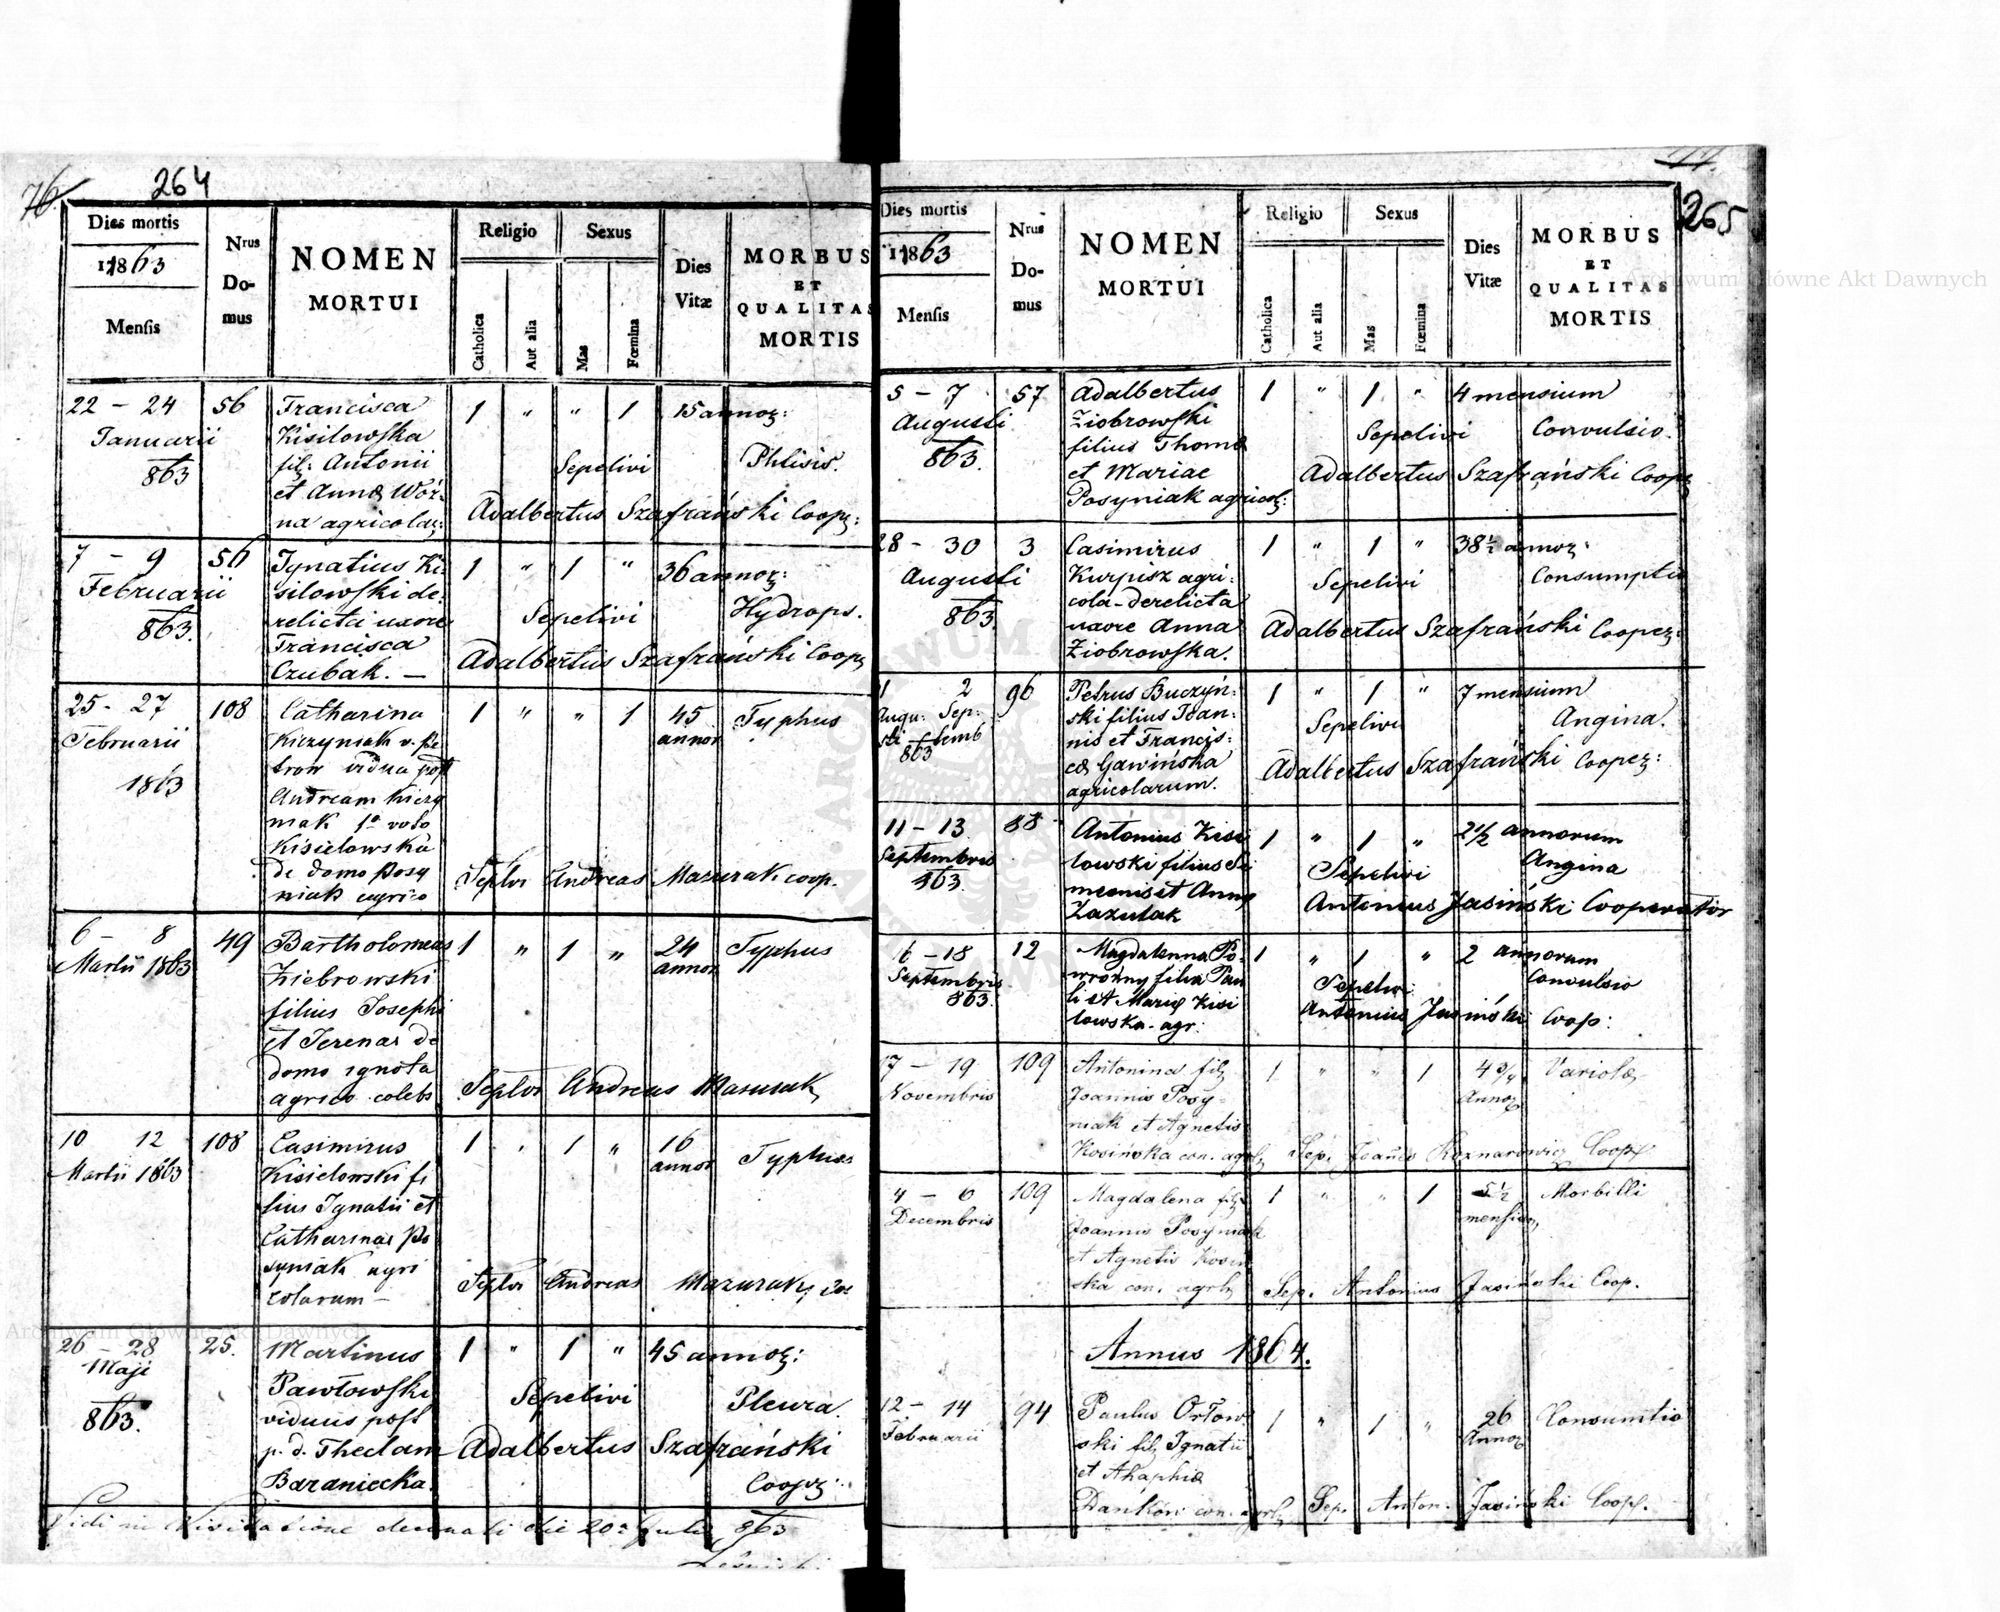 76
264
Dies mortis
1863
Mensis
Nrus Domus
NOMEN
MORTUI
Religio
Catholica
Aut alia
Sexus
Mas
Fœmina
Dies Vitæ
MORBUS
ET
QUALITAS
MORTIS
22 - 24 56 Francisca 1 " " 1 15 annor:
Januarii Kisilowska
863 fil: Antonii Sepelivi Phtisis.
et Annæ Woź-
na agricolar: Adalbertus Szafrański Coop:
7 - 9 56 Ignatius Ki- 1 " 1 " 36 annor:
Februarii silowski de-
863. relicta uxore Sepelivi Hydrops.
Francisca Adalbertus Szafrański Coop
Czubak. —
25 - 27 108 Catharina 1 " " 1 45 annor Typhus
Februarii Kiczyniak v. Pe
1863 trow vidua post
Andream Kiczy
niak 1o voto
Kisielowska
de domo Posy
niak agrico Seplvr Andreas Mazurak coop.
6 - 8 49 Bartholomeus 1 " 1 " 24 annor Typhus
Martii 1863 Ziebrowski
filius Josephi
et Terenae de
domo ignota
agrico. colebs Seplvr Andreas Mazurak
10 12 108 Casimirus 1 " 1 " 16 annor Typhus
Martii 1863 Kisielowski fi
lius Ignatii et
Catharinae Po
syniak agri
colarum — Seplvr Andreas Mazurak
26 - 28 25. Martinus 1 " 1 " 45 annor:
Maji Pawłowski Sepelivi Pleura.
863. viduus post
p. d. Theclam Adalbertus Szafrański
Baraniecka. Coop:
Vidi in Visitatione decanali die 20a Julii 863
265
Dies mortis
1863
Mensis
Nrus Domus
NOMEN
MORTUI
Religio
Catholica
Aut alia
Sexus
Mas
Fœmina
Dies Vitæ
MORBUS
ET
QUALITAS
MORTIS
5 - 7 57 Adalbertus 1 " 1 " 4 mensium
Augusti Ziobrowski Sepelivi Convulsio.
863. filius Thomæ
et Mariae Adalbertus Szafrański Coop
Posyniak agricol:
28 - 30 3 Casimirus 1 " 1 " 38½ annor:
Augusti Kurpisz agri- Sepelivi Consumptio
863. cola - derelicta
uxore Anna Adalbertus Szafrański Cooper:
Ziobrowska.
1 2 96 Petrus Buczyń- 1 " 1 " 7 mensium
Augu- Sep- ski filius Joan- Sepelivi Angina.
sti - temb nis et Francis-
863 cæ Gawińska Adalbertus Szafrański Cooper:
agricolarum.
11 - 13 88 Antonius Kisi 1 " 1 " 2½ annorum
Septembris lowski filius Si Sepelivi Angina
863. meonis et Annæ Antonius Jasiński Cooperator
Zazulak
16 - 18 12 Magdalenna Po- 1 " 1 " 2 annorum
Septembris wrożny filia Pau Sepelivi Convulsio
863. li et Mariæ Kisi Antonius Jasiński Coop:
lowska - agr:
17 - 19 109 Antonina fil 1 " " 1 4¾ Annor Variolæ
Novembris Joannis Posy-
niak et Agnetis
Kosińska con. agrl Sep. Joanes Koznarowicz Coop.
4 - 6 109 Magdalena fil 1 " " 1 5½ mensium Morbilli
Decembris Joannis Posyniak
et Agnetis Kosiń
ska con. agrl Sep. Antonius Jasiński Coop.
Annus 1864.
12 - 14 94 Paulus Orłow- 1 " 1 " 26 Annor Consumtio
Februarii ski fil Ignatii
et Ahaphiæ
Dańków con. agrl Sep. Anton. Jasiński Coop.
Archiwum Główne Akt Dawnych
Archiwum Główne Akt Dawnych